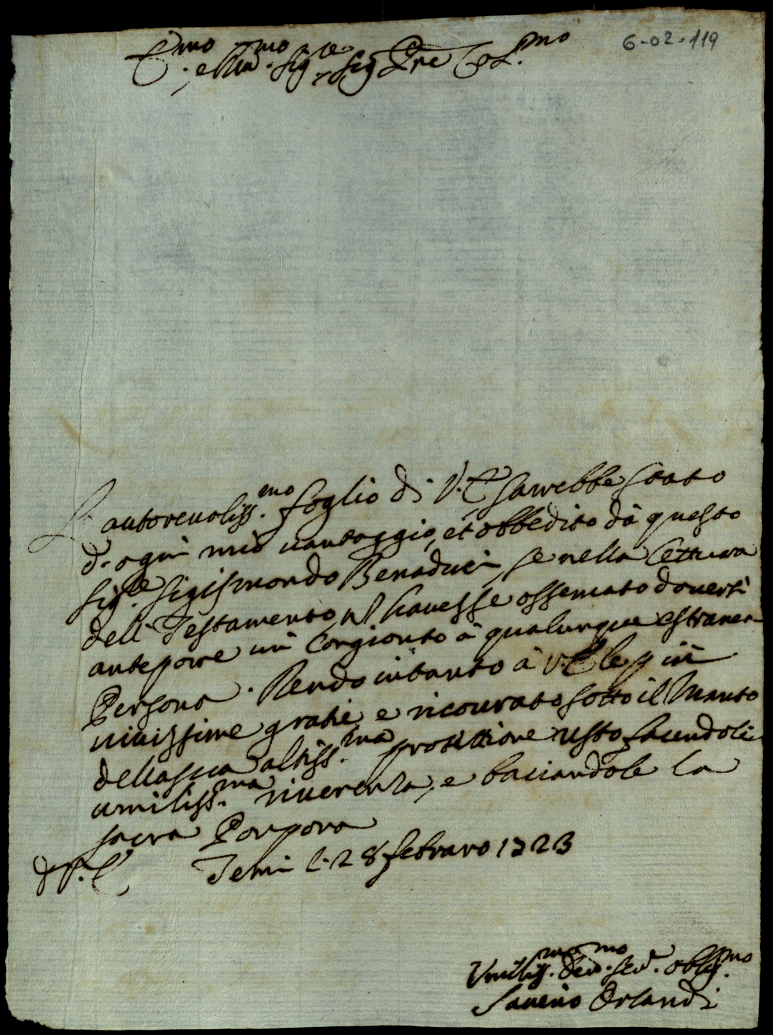 6-02-119
E.mo e Rev.mo Sig.re Sig Pre Col.mo
L'autorevoliss.mo foglio di V.E. sarebbe stato
d'ogni mio vantaggio, et obbedito da questo
Sig.re Sigismondo Benaduci, se nella Lettura
dell Testamento n havesse osservato doversi
anteporre un Congionto à qualunque estranea
Persona. Rendo intanto à V.E. le più
vivissime gratie e ricourato sotto il Manto
della sua altiss.ma protettione resto facendoli
umiliss.ma riverenza, e baciandole la
sacra Porpora
D V.E. Jesi li 28 febraro 1723
Umiliss.mo Dev.mo Ser.e oblig.mo
Saverio Orlandi